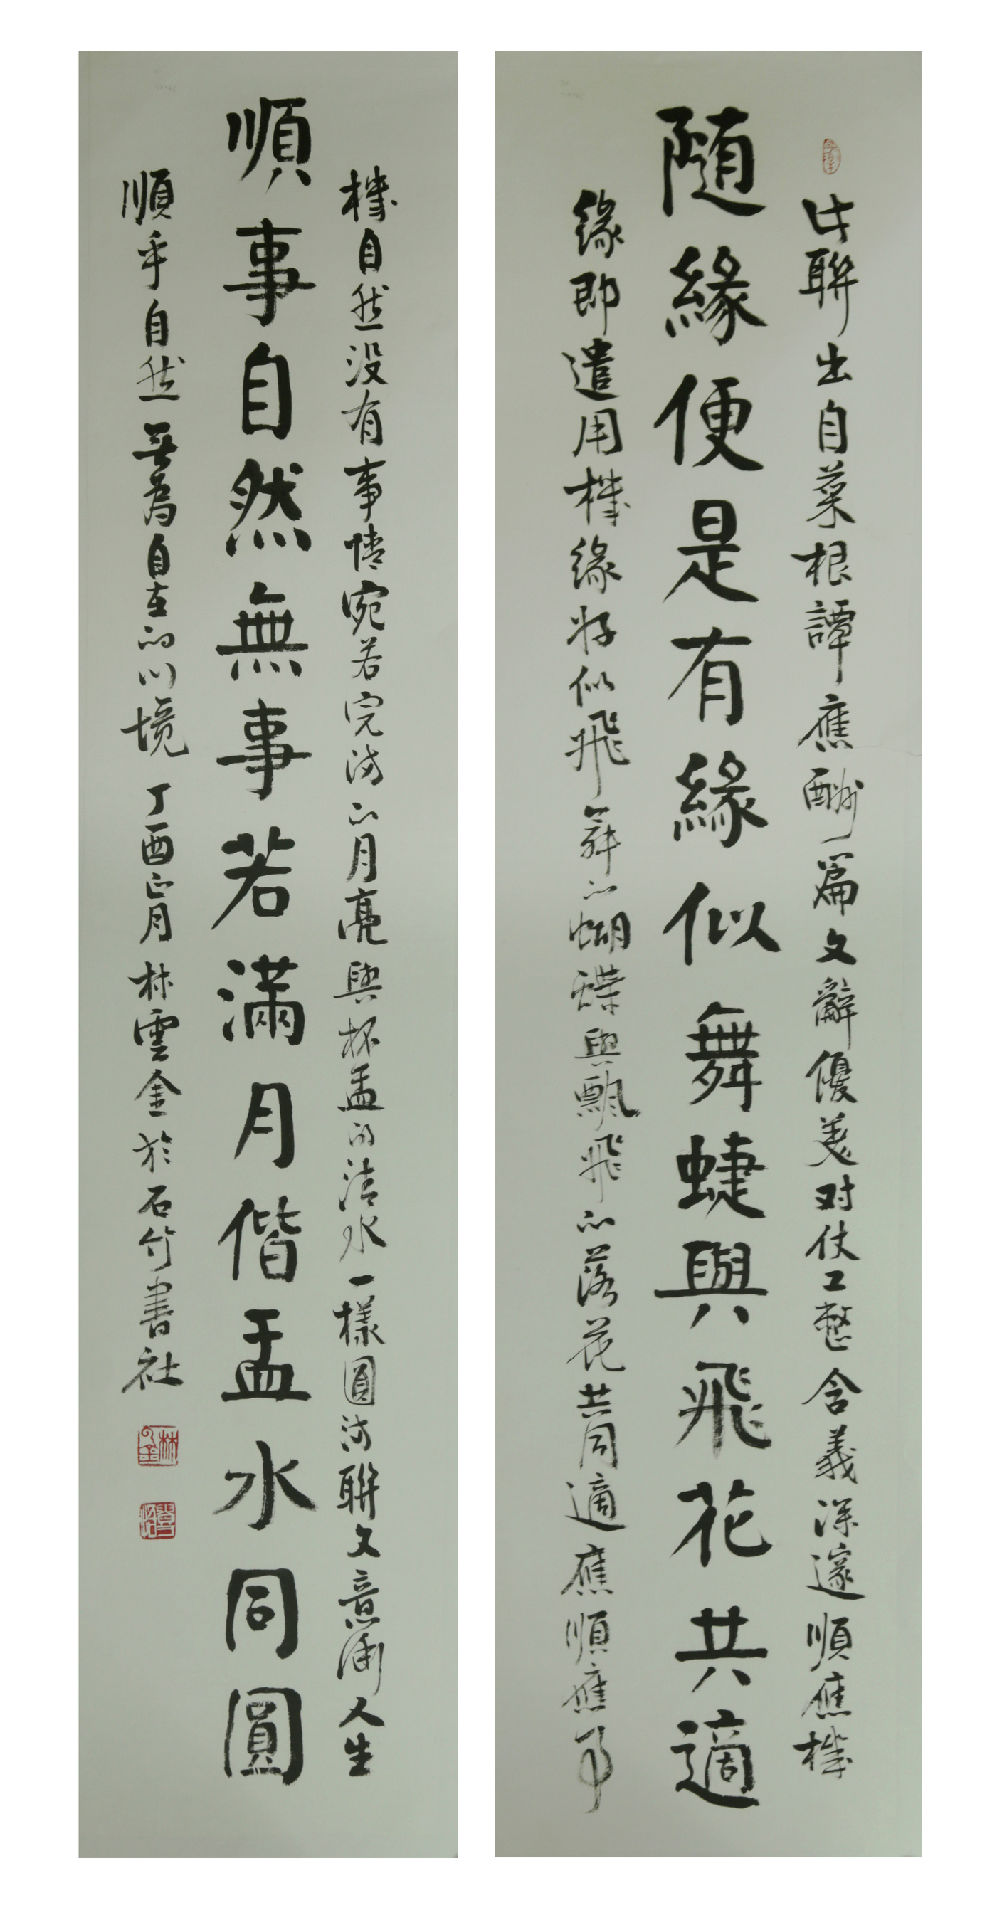 此聯出自菜根譚應酬篇文辭優美对仗工整含義深邃順應機
隨緣便是有緣似舞蜨與飛花共適
緣即遣用機緣好似飛舞的蝴蝶與飄飛的落花共同適應順應事
機自然没有事情宛若完满的月亮與杯盂的清水一樣圓满聯文意衝人生
順事自然無事若滿月偕盂水同圓
順乎自然無為自在的心境丁酉正月林雲金於石竹書社